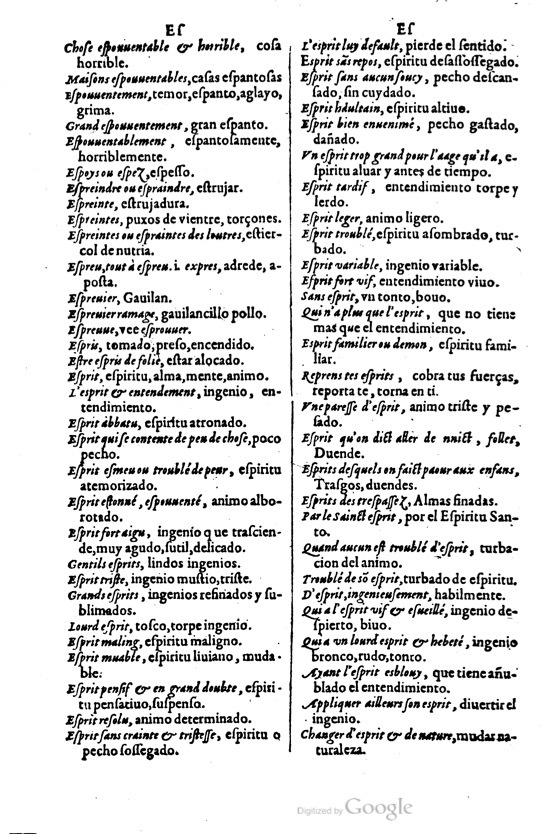 Eſ
Choſe eſpouuentable & horrible, coſa
horrible.
Maiſons eſpouuentables, caſas eſpantoſas
Eſpouuentement, temor, eſpanto, aglayo,
grima.
Grand eſpouuentement, gran eſpanto.
Eſpouuentablement, eſpantoſamente,
horriblemente.
Eſpoys ou eſpez, eſpeſſo.
Eſpreindre ou eſpraindre, eſtrujar.
Eſpreinte, eſtrujadura.
Eſpreintes, puxos de vientre, torçones.
Eſpreintes ou eſpraintes des loutres, eſtier-
col de nutria.
Eſpreu, tout à eſpreu. i. expres, adrede, a-
poſta.
Eſpreuier, Gauilan.
Eſpreuier ramage, gauilancillo pollo.
Eſpreuue, vee eſprouuer.
Eſpris, tomado, preſo, encendido.
Eſtre eſpris de folie, eſtar alocado.
Eſprit, eſpiritu, alma, mente, animo.
L'eſprit & entendement, ingenio, en-
tendimiento.
Eſprit abbatu, eſpiritu atronado.
Eſprit qui ſe contente de peu de choſe, poco
pecho.
Eſprit eſmeu ou troublé de peur, eſpiritu
atemorizado.
Eſprit eſtonné, eſpouuenté, animo albo-
rotado.
Eſprit fort aigu, ingenio que traſcien-
de, muy agudo, ſutil, delicado.
Gentils eſprits, lindos ingenios.
Eſprit triſte, ingenio muſtio, triſte.
Grands eſprits, ingenios reſinados y ſu-
blimados.
Lourd eſprit, toſco, torpe ingenio.
Eſprit maling, eſpiritu maligno.
Eſprit muable, eſpiritu liuiano, muda-
ble.
Eſprit penſif & en grand doubte, eſpiri-
tu penſatiuo, ſuſpenſo.
Eſprit reſolu, animo determinado.
Eſprit ſans crainte & triſteſſe, eſpiritu o
pecho ſoſſegado.
Eſ
L'eſprit luy default, pierde el ſentido.
Eſprit sãs repos, eſpiritu deſaſſoſſegado.
Eſprit ſans aucun ſoucy, pecho deſcan-
ſado, ſin cuydado.
Eſprit haultain, eſpiritu altiuo.
Eſprit bien enuenimé, pecho gaſtado,
dañado.
Vn eſprit trop grand pour l'aage qu'il a, e-
ſpiritu aluar y antes de tiempo.
Eſprit tardif, entendimiento torpe y
lerdo.
Eſprit leger, animo ligero.
Eſprit troublé, eſpiritu aſombrado, tur-
bado.
Eſprit variable, ingenio variable.
Eſprit fort vif, entendimiento viuo.
Sans eſprit, vn tonto, bouo.
Qui n'a plus que l'eſprit, que no tiene
mas que el entendimiento.
Eſprit familier ou demon, eſpiritu fami-
liar.
Reprens tes eſprits, cobra tus fuerças,
reporta te, torna en ti.
Vne pareſſe d'eſprit, animo triſte y pe-
ſado.
Eſprit qu'on dict aller de nuict, follet,
Duende.
Eſprits deſquels on faict paour aux enfans,
Traſgos, duendes.
Eſprits des treſpaſſez, Almas finadas.
Par le Sainct eſprit, por el Eſpiritu San-
to.
Quand aucun eſt troublé d'eſprit, turba-
cion del animo.
Troublé de sõ eſprit, turbado de eſpiritu.
D'eſprit, ingenieuſement, habilmente.
Qui a l'eſprit vif & eſueillé, ingenio de-
ſpierto, biuo.
Qui a vn lourd esprit & hebeté, ingenio
bronco, rudo, tonto.
Ayant l'eſprit eſblouy, que tiene añu-
blado el entendimiento.
Appliquer ailleurs ſon eſprit, diuertir el
ingenio.
Changer d'eſprit & de nature, mudar na-
turaleza.
Digitized by Google